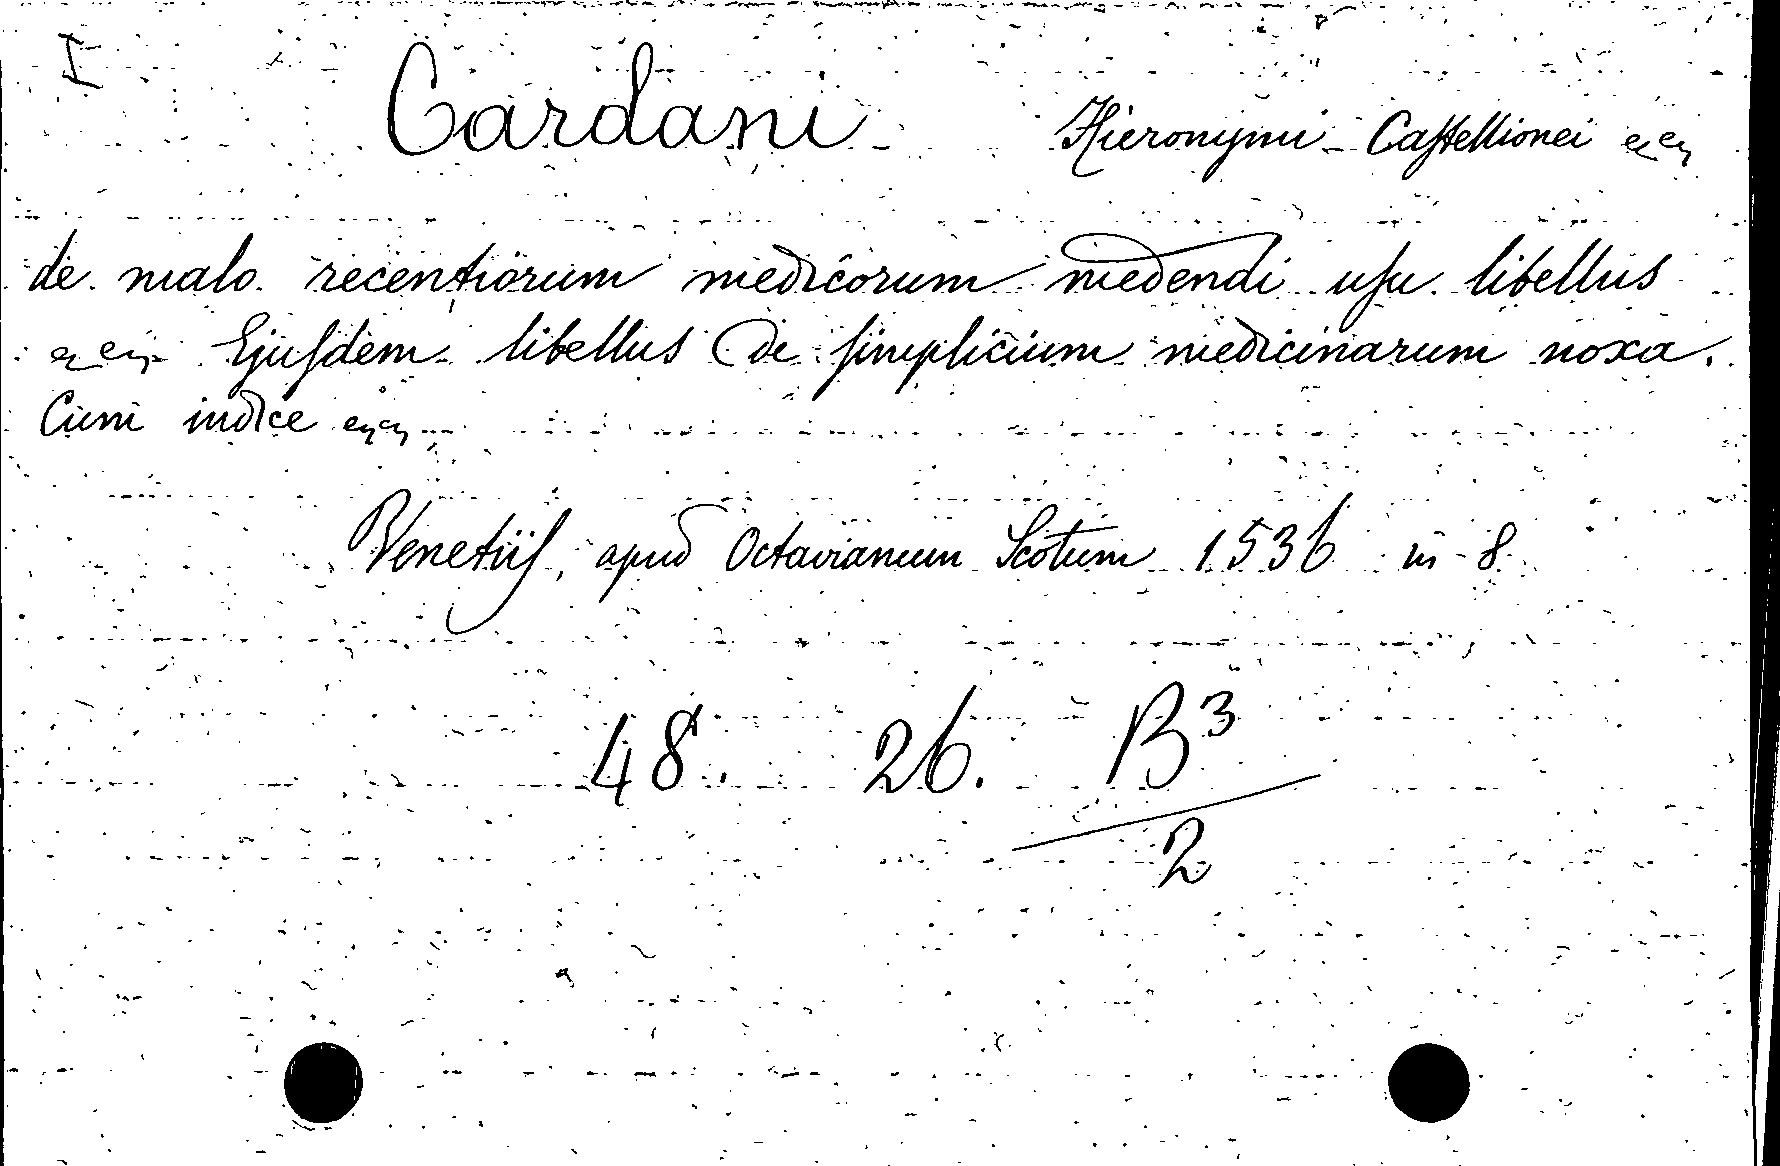 I
Cardani Hieronymi Caſtellionei
de malo recentiorum medicorum medendi uſu libellus
Ejuſdem libellus de ſimplicium medicinarum noxa.
Cum indice
Venetiiſ, apud Octavianum Scotum 1536 in 8
48. 26. B3
2